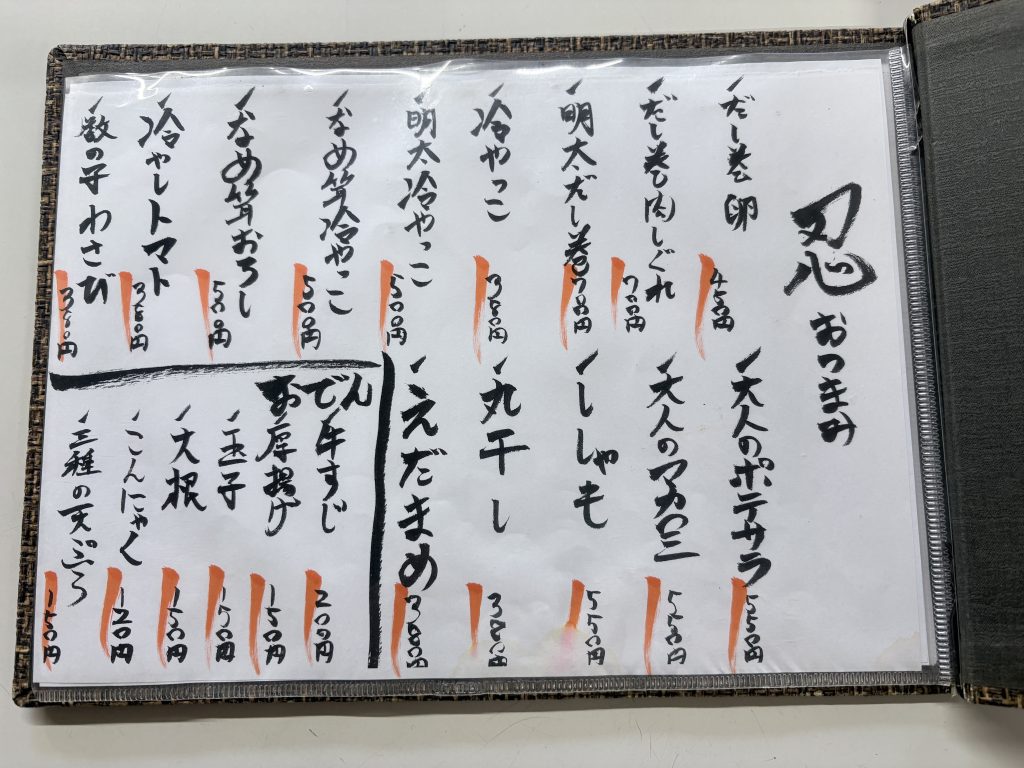 忍 おつまみ
だし巻卵 450円
だし巻肉しぐれ 700円
明太だし巻 700円
冷やっこ 350円
明太冷やっこ 500円
なめ茸冷やっこ 500円
なめ茸おろし 500円
冷やしトマト 350円
数の子わさび 350円
大人のポテサラ 550円
大人のマカロニ 550円
ししゃも 550円
丸干し
えだまめ 300円
おでん
牛すじ 200円
厚揚げ 150円
玉子 150円
大根 150円
こんにゃく 120円
三種の天ぷら 150円